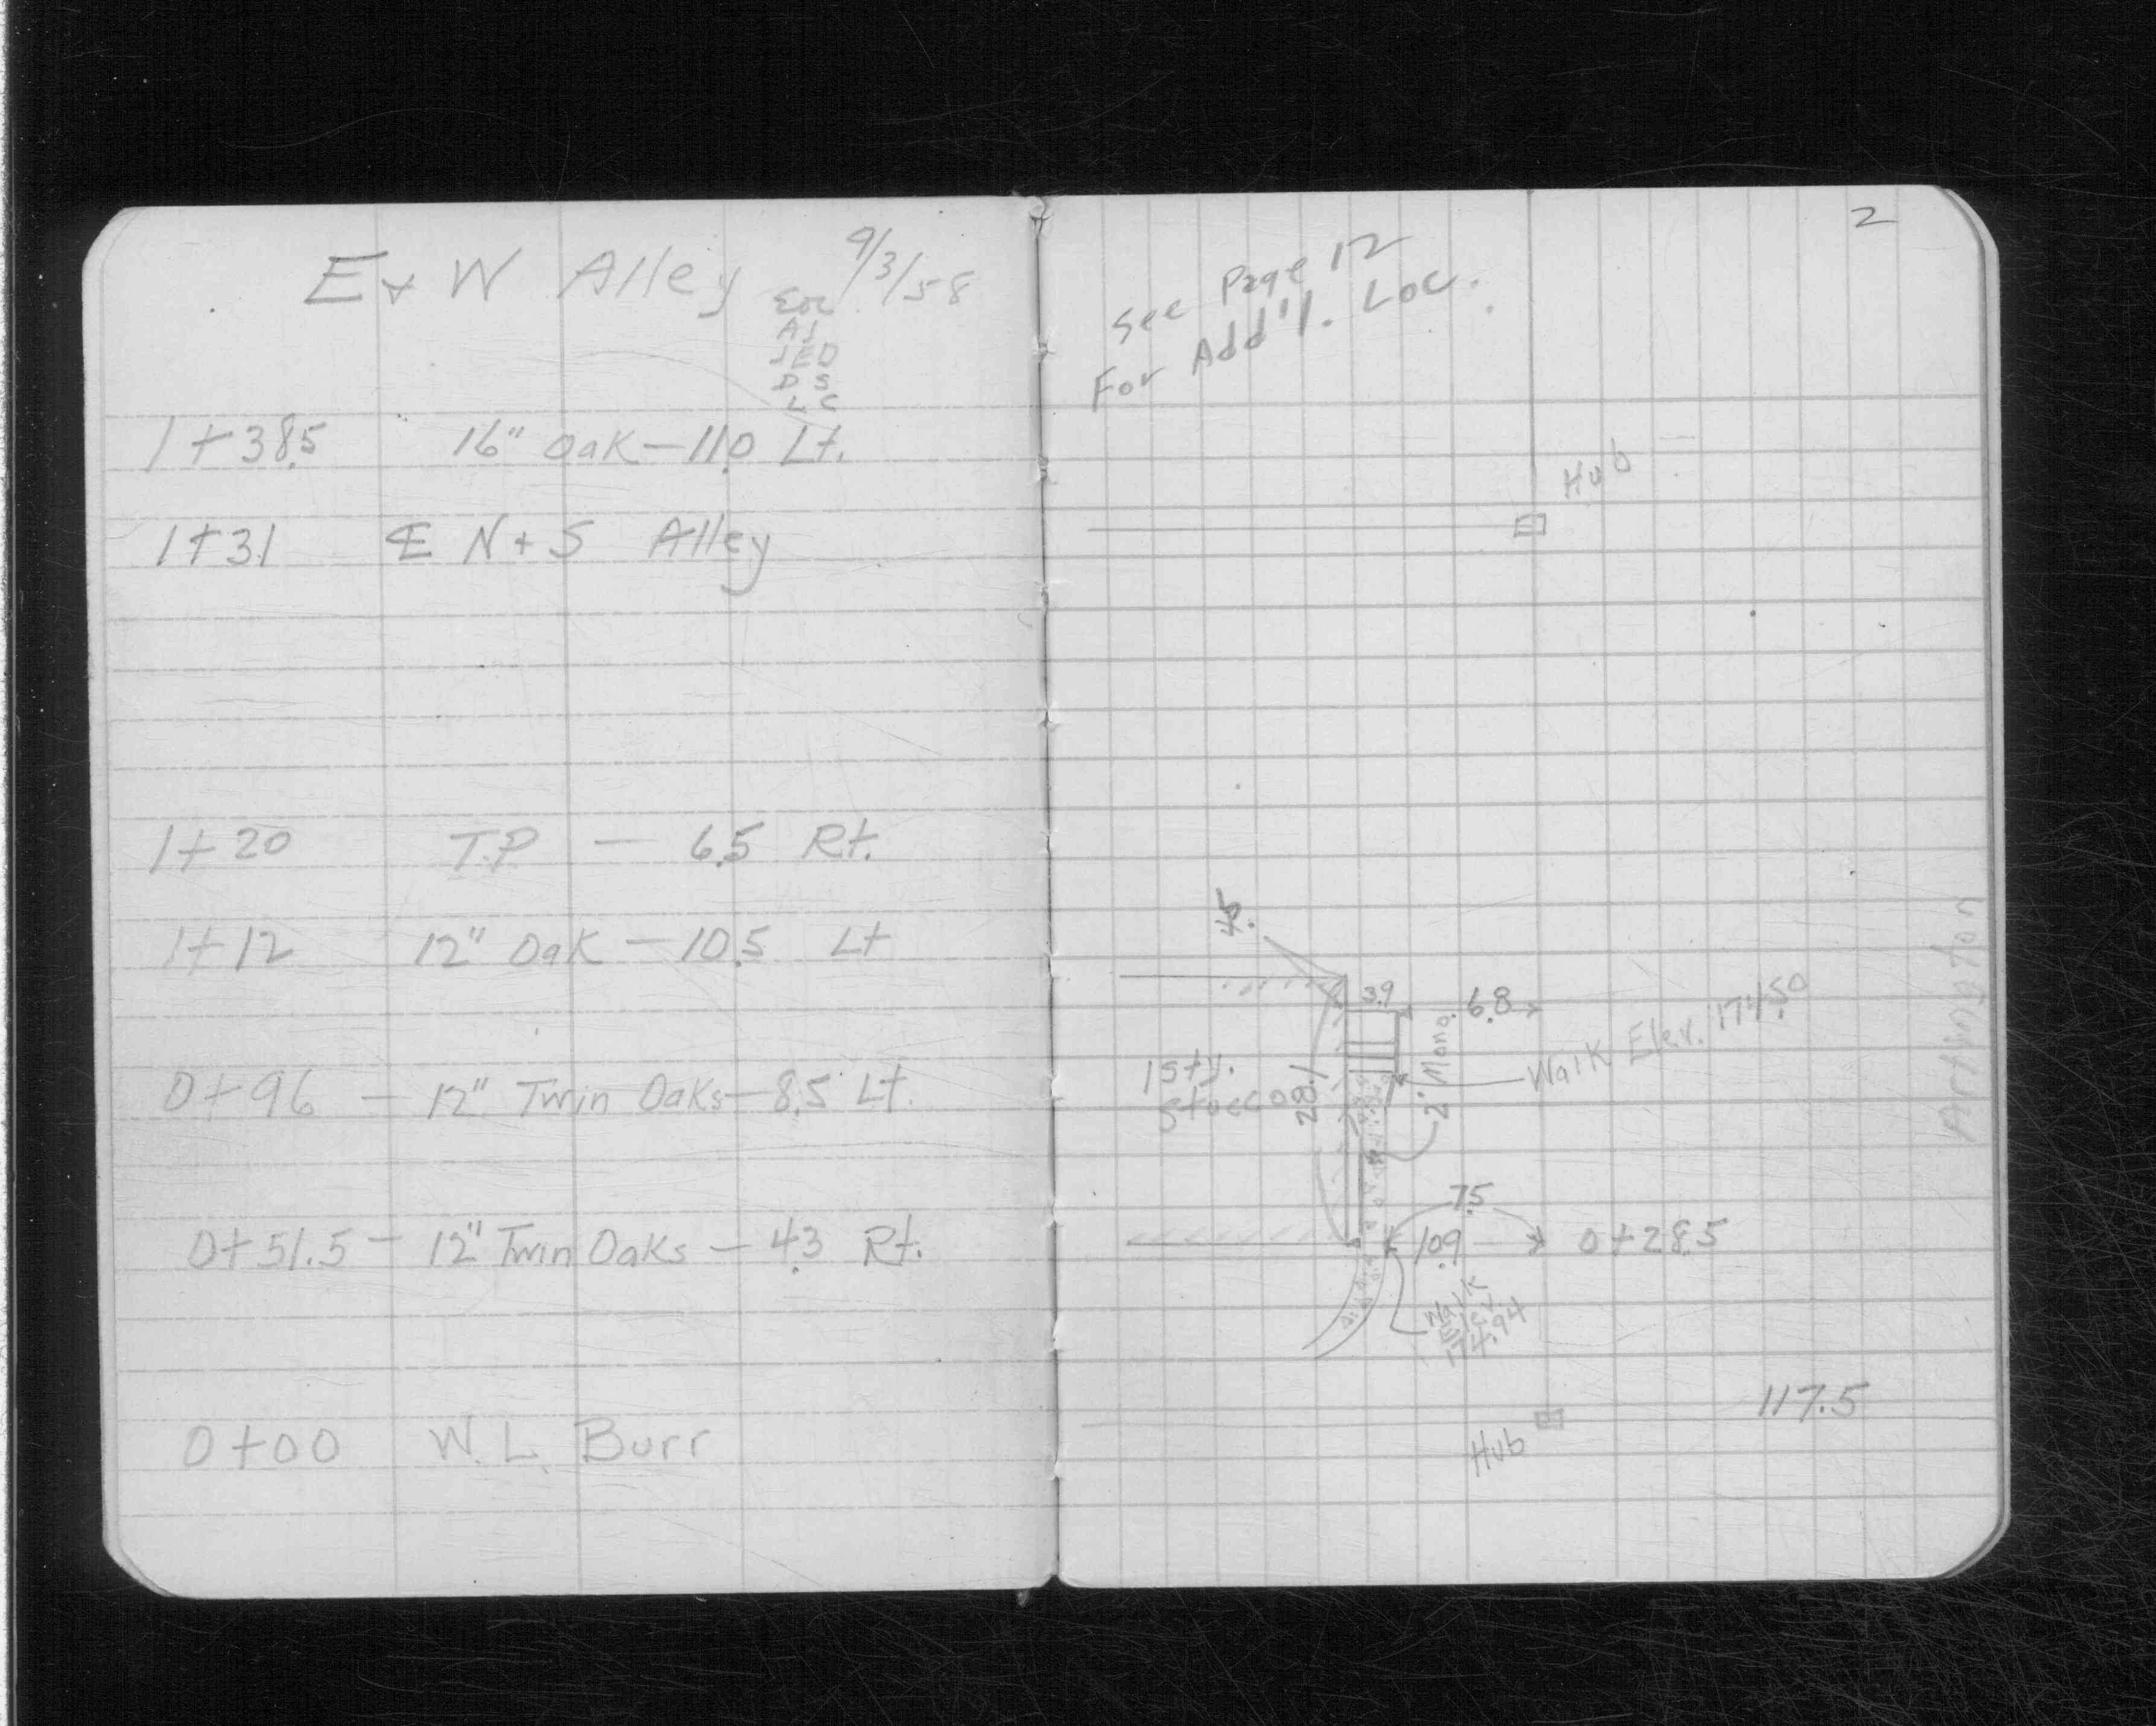 E & W Alley 9/3/58
EOC
AJ
JED
DS
LC
1+38.5 16" Oak — 11.0 Lt.
1+31 ℄ N + S Alley
1+20 T.P — 6.5 Rt.
1+12 12" Oak — 10.5 Lt
0+96 — 12" Twin Oaks — 8.5 Lt.
0+51.5 — 12" Twin Oaks — 4.3 Rt.
0+00 W. L. Burr
2
See Page 12
For Add'l. Loc.
Hub
3.9
6.8
Walk Elev. 174.50
2' Mono.
1 sty.
Stucco
28.1
7.5
10.9
0+28.5
Walk
Elev
174.94
Hub
117.5
Arthington